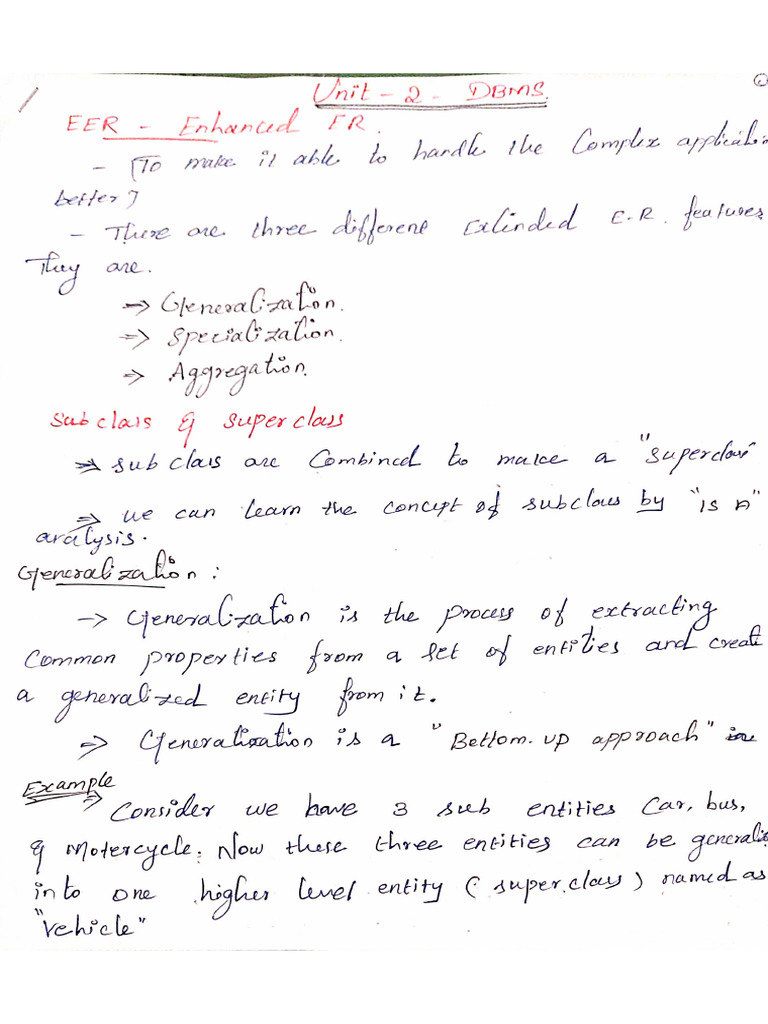 Unit - 2 - DBMS.
EER - Enhanced ER.
- [To make it able to handle the Complex applicatio
better]
- There are three different Extended E.R. features
They are.
=> Generalization.
=> Specialization.
=> Aggregation.
Subclass & Superclass
=> Subclass are Combined to make a "Superclass"
=> we can learn the concept of subclass by "is A"
analysis.
Generalization:
-> Generalization is the process of extracting
Common properties from a set of entities and create
a generalized entity from it.
=> Generalization is a "Bottom.up approach"
Example
=> Consider we have 3 sub entities Car, bus,
& Motercycle. Now these three entities can be generaliz
into one higher level entity (super.class) named as
"Vehicle"